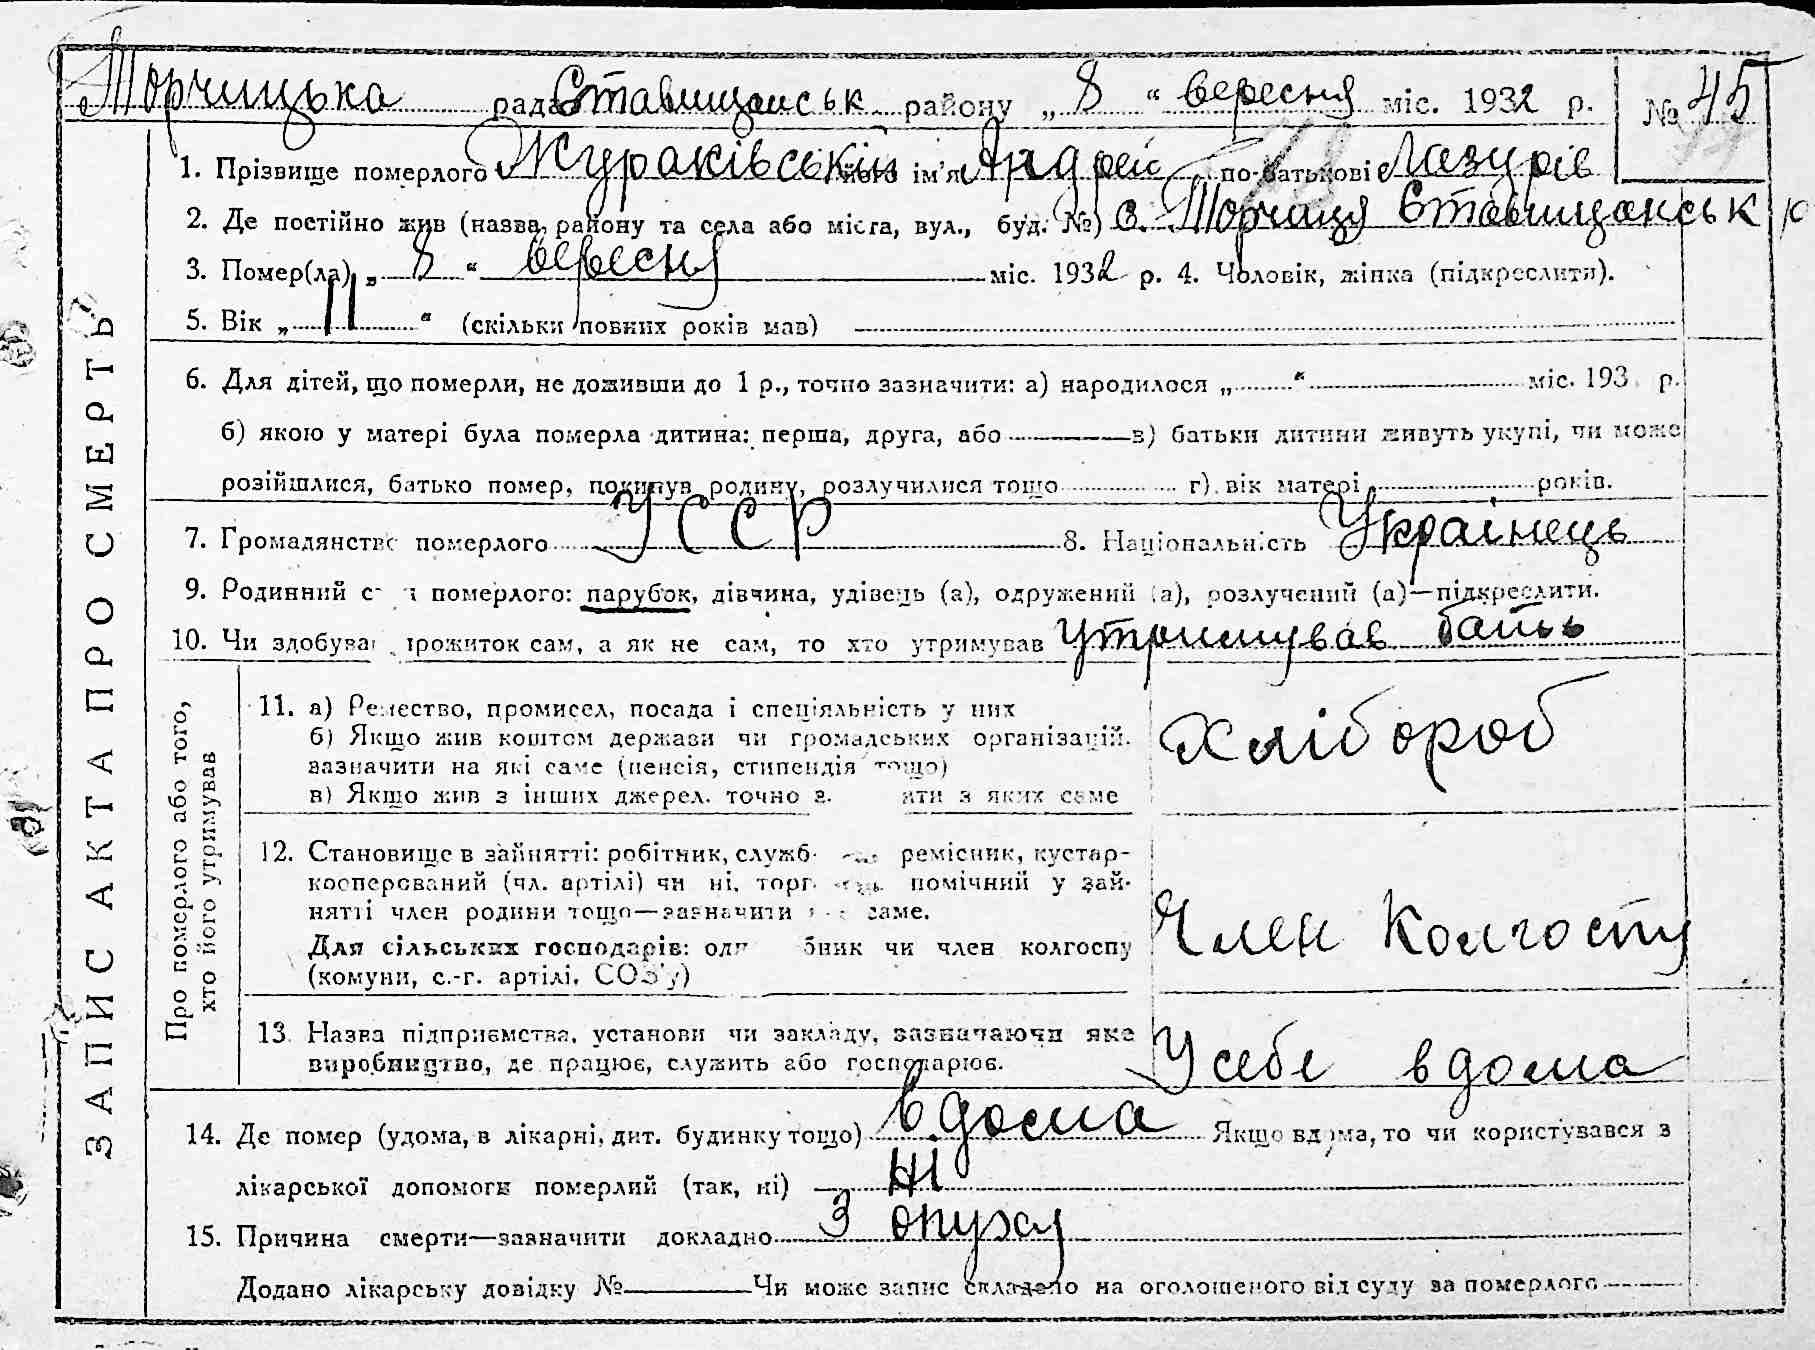 Торчицька рада Ставищанськ району „ 8 “ вересня міс. 1932 р. № 45
1. Прізвище померлого Жураківський його ім'я Андрей по-батькові Лазурів
2. Де постійно жив (назва, району та села або міста, вул., буд. №) с. Торчиця Ставищанськ р
3. Помер(ла) „ 8 “ вересня міс. 1932 р. 4. Чоловік, жінка (підкреслити).
5. Вік „ 11 “ (скільки повних років мав)
6. Для дітей, що померли, не доживши до 1 р., точно зазначити: а) народилося „ “ міс. 193 р.
б) якою у матері була померла дитина: перша, друга, або в) батьки дитини живуть укупі, чи може
розійшлися, батько помер, покинув родину, розлучилися тощо г) вік матері років.
7. Громадянство померлого УССР 8. Національність Українець
9. Родинний с н померлого: парубок, дівчина, удівець (а), одружений (а), розлучений (а)—підкреслити.
10. Чи здобував прожиток сам, а як не сам, то хто утримував утримував батьь
ЗАПИС АКТА ПРО СМЕРТЬ
Про померлого або того,
хто його утримував
11. а) Ремество, промисел, посада і спеціяльність у них
б) Якщо жив коштом держави чи громадських організацій.
зазначити на які саме (пенсія, стипендія тощо)
в) Якщо жив з інших джерел. точно з. ати з яких саме
Хлібороб
12. Становище в зайнятті: робітник, служб. ремісник, кустар-
кооперований (чл. артілі) чи ні, торг. помічний у зай-
нятті член родини тощо—зазначити саме.
Для сільських господарів: одн бник чи член колгоспу
(комуни, с.-г. артілі, СОЗ'у)
Член Колгоспу
13. Назва підприємства, установи чи закладу, зазначаючи яке
виробництво, де працює, служить або господарює.
У себе вдома
14. Де помер (удома, в лікарні, дит. будинку тощо) вдома Якщо вдома, то чи користувався з
лікарської допомоги померлий (так, ні) Ні
15. Причина смерти—зазначити докладно З опухя
Додано лікарську довідку № Чи може запис складено на оголошеного від суду за померлого